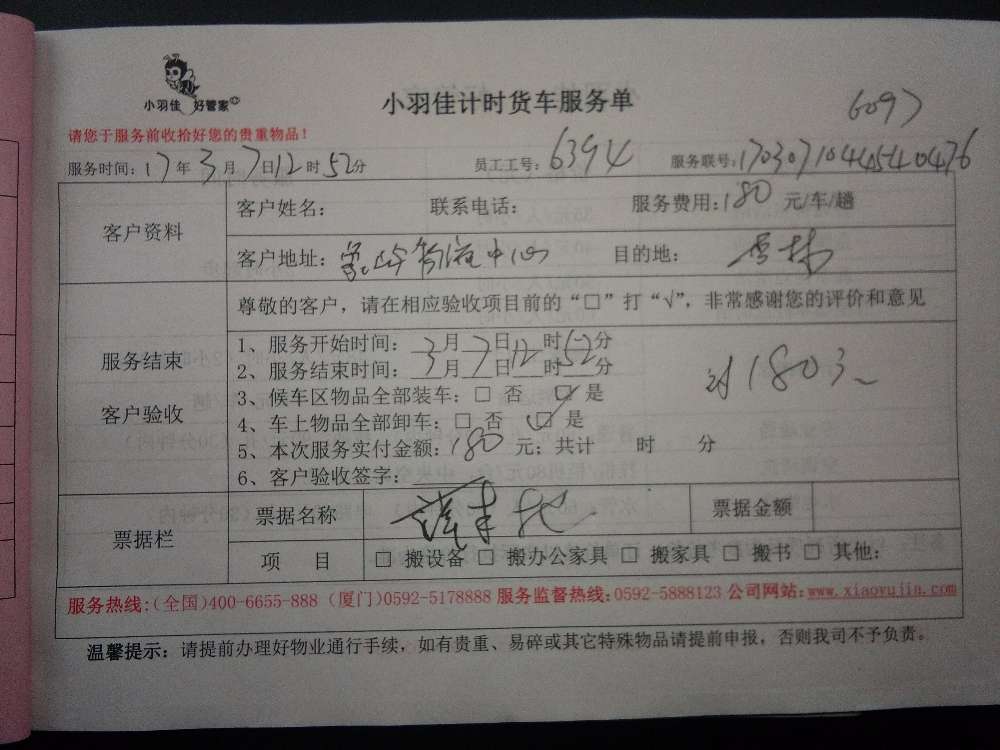 小羽佳 好管家
小羽佳计时货车服务单
6097
请您于服务前收拾好您的贵重物品！
服务时间：17年3月7日12时52分 员工工号：6394 服务联号：
客户资料
客户姓名： 联系电话： 服务费用：180元/车/趟
客户地址： 中心 目的地：
尊敬的客户，请在相应验收项目前的“□”打“√”，非常感谢您的评价和意见
服务结束
客户验收
1、服务开始时间：3月7日12时52分
2、服务结束时间：3月7日 时 分
3、候车区物品全部装车：□ 否 ☑ 是
4、车上物品全部卸车：□ 否 ☑ 是
5、本次服务实付金额：180元；共计 时 分
6、客户验收签字：
180元
票据栏
票据名称 票据金额
项 目 □ 搬设备 □ 搬办公家具 □ 搬家具 □ 搬书 □ 其他：
服务热线：（全国）400-6655-888（厦门）0592-5178888 服务监督热线：0592-5888123 公司网站：www.xiaoyujia.com
温馨提示：请提前办理好物业通行手续，如有贵重、易碎或其它特殊物品请提前申报，否则我司不予负责。